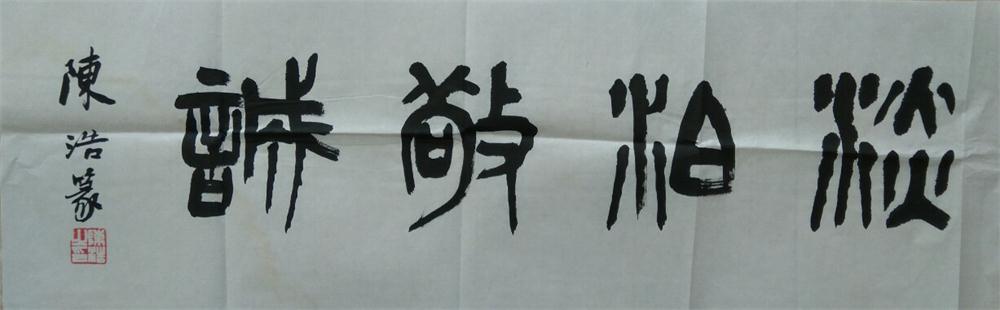 淡泊敬誠
陳浩篆